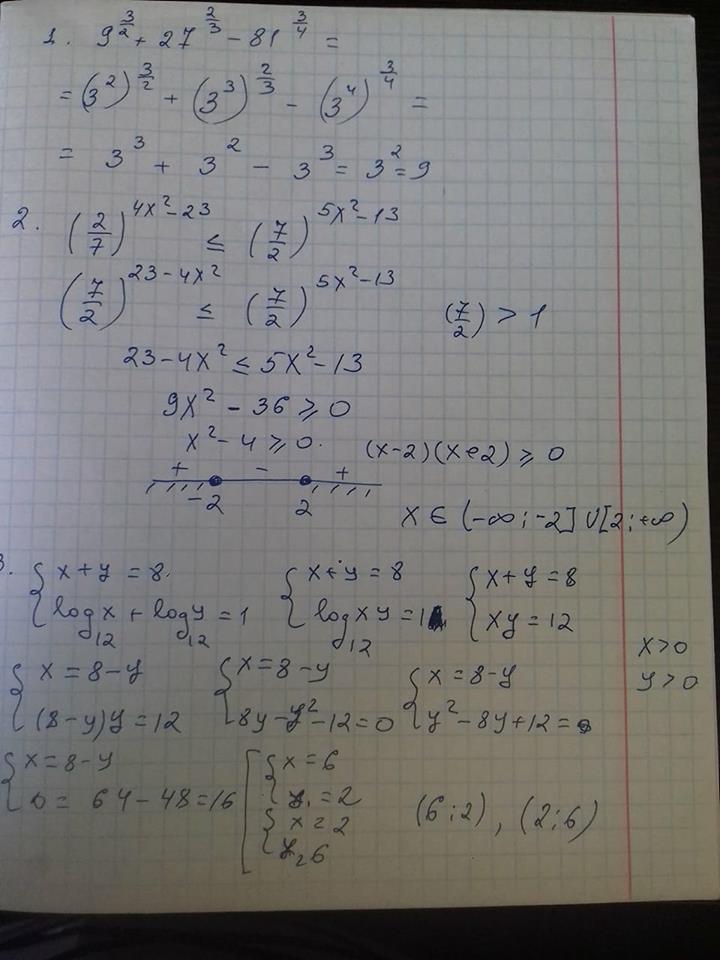 1. 9^(3/2) + 27^(2/3) − 81^(3/4) =
= (3^2)^(3/2) + (3^3)^(2/3) − (3^4)^(3/4) =
= 3^3 + 3^2 − 3^3 = 3^2 = 9
2. (2/7)^(4x^2−23) ≤ (7/2)^(5x^2−13)
(7/2)^(23−4x^2) ≤ (7/2)^(5x^2−13) (7/2) > 1
23−4x^2 ≤ 5x^2−13
9x^2 − 36 ≥ 0
x^2 − 4 ≥ 0 (x−2)(x+2) ≥ 0
+ − +
−2 2 x ∈ (−∞; −2] ∪ [2; +∞)
3. { x+y = 8 { x+y = 8 { x+y = 8
log_12 x + log_12 y = 1 log_12 xy = 1 xy = 12
x>0
{ x = 8−y { x = 8−y { x = 8−y y>0
(8−y)y = 12 8y−y^2−12 = 0 y^2−8y+12 = 0
{ x = 8−y [ { x = 6
D = 64−48 = 16 y = 2 (6;2), (2;6)
{ x = 2
y = 6